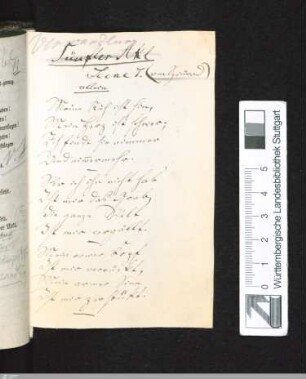 Verwandlung
Fünfter Akt
Scene 1.
allein
Meine Ruh ist hin,
Mein Herz ist schwer;
Ich finde sie nimmer
Und nimmermehr.
Wo ich ihn nicht hab
Ist mir das Grab,
Die ganze Welt
Ist mir vergällt.
Mein armer Kopf
Ist mir verrückt,
Mein armer Sinn
Ist mir zerstückt.
Württembergische Landesbibliothek Stuttgart
0 1 2 3 4 5